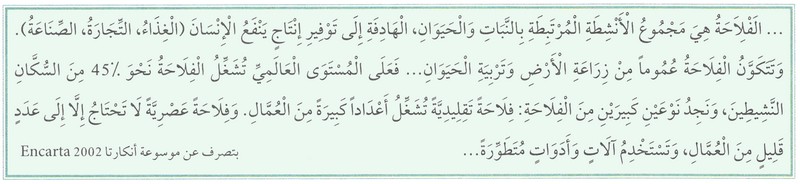 ... الْفِلَاحَةُ هِيَ مَجْمُوعُ الْأَنْشِطَةِ الْمُرْتَبِطَةِ بِالنَّبَاتِ وَالْحَيَوَانِ، الْهَادِفَةِ إِلَى تَوْفِيرِ إِنْتَاجٍ يَنْفَعُ الْإِنْسَانَ (الْغِذَاءُ، التِّجَارَةُ، الصِّنَاعَةُ).
وَتَتَكَوَّنُ الْفِلَاحَةُ عُمُوماً مِنْ زِرَاعَةِ الْأَرْضِ وَتَرْبِيَةِ الْحَيَوَانِ... فَعَلَى الْمُسْتَوَى الْعَالَمِيِّ تُشَغِّلُ الْفِلَاحَةُ نَحْوَ 45٪ مِنَ السُّكَّانِ
النَّشِيطِينَ، وَنَجِدُ نَوْعَيْنِ كَبِيرَيْنِ مِنَ الْفِلَاحَةِ: فِلَاحَةٌ تَقْلِيدِيَّةٌ تُشَغِّلُ أَعْدَاداً كَبِيرَةً مِنَ الْعُمَّالِ. وَفِلَاحَةٌ عَصْرِيَّةٌ لَا تَحْتَاجُ إِلَّا إِلَى عَدَدٍ
قَلِيلٍ مِنَ الْعُمَّالِ، وَتَسْتَخْدِمُ آلَاتٍ وَأَدَوَاتٍ مُتَطَوِّرَةً... بتصرف عن موسوعة أنكارتا Encarta 2002